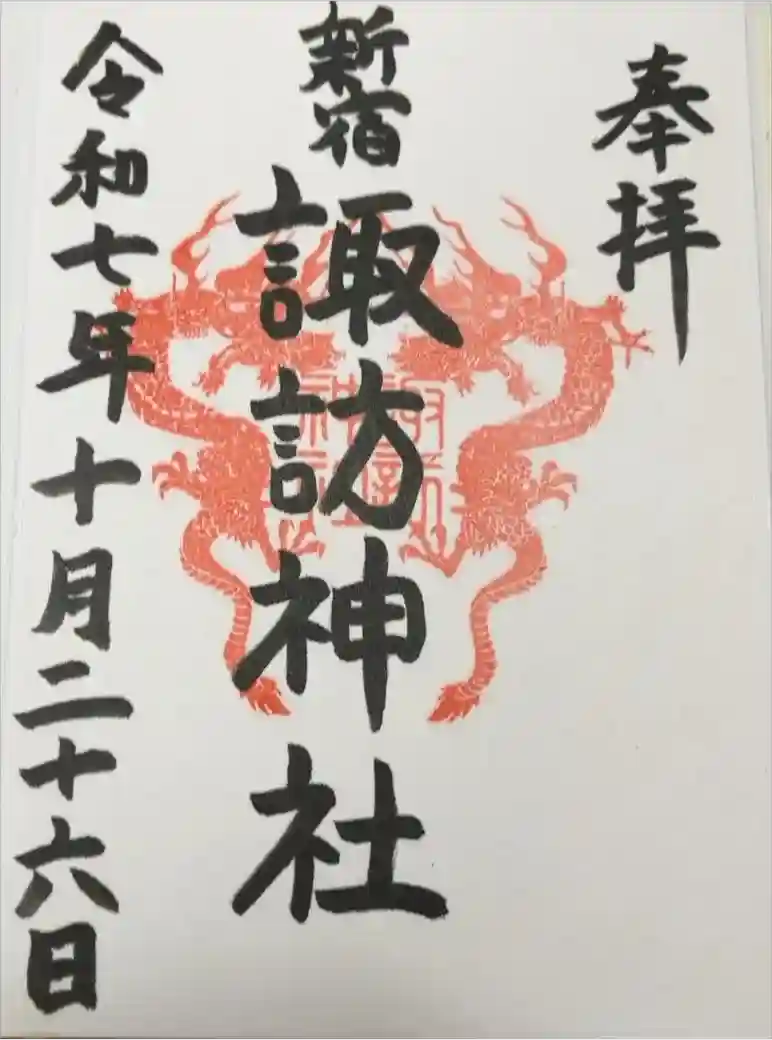 奉拝
新宿
諏訪神社
令和七年十月二十六日